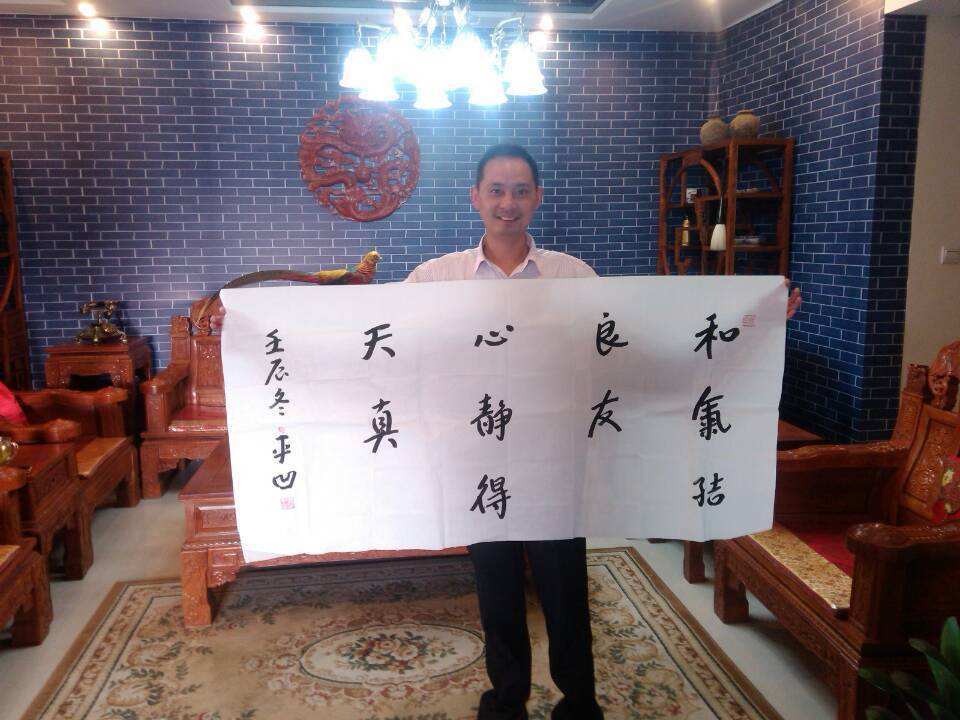 和氣结
良友
心静得
天真
壬辰冬平凹